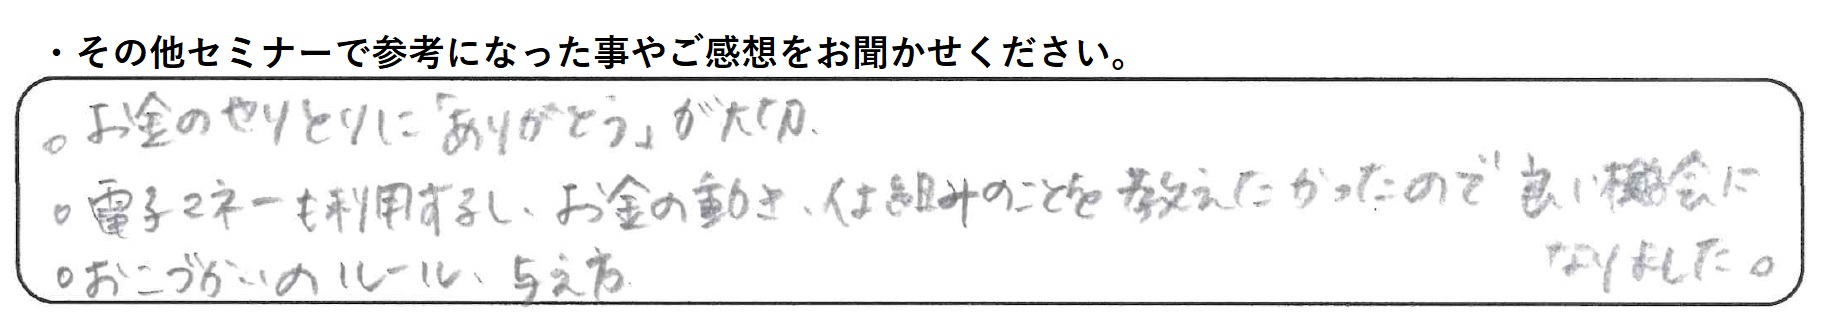 ・その他セミナーで参考になった事やご感想をお聞かせください。
。お金のやりとりに「ありがとう」が大切、
。電子マネーも利用するし、お金の動き、仕組みのことを教えたかったので良い機会に
なりました。
。おこづかいのルール、与え方